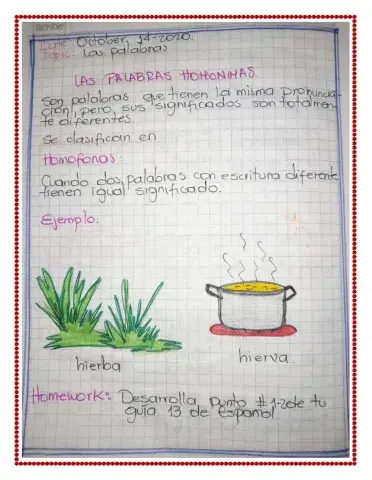 Date: October, 14-2020.
Topic: Las palabras
LAS PALABRAS HOMONIMAS
Son palabras que tienen la misma pronuncia-
ción, pero sus significados son totalmen-
te diferentes
Se clasifican en
Homofonas:
Cuando dos palabras con escritura diferente
tienen igual significado.
Ejemplo:
hierba
hierva
Homework: Desarrolla punto #1-2de tu
guia 13 de Español